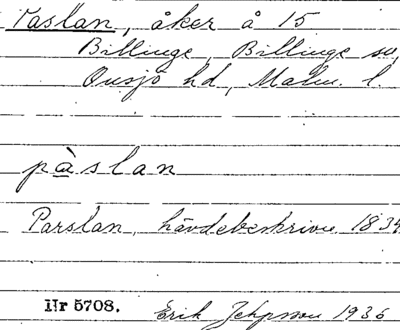 Paslan, åker å 15
Billinge, Billinge sn,
Onsjö hd, Malm. l.
pàslan
Parslan, hävdebeskrivn. 1834
Nr 5708. Erik Jeppsson 1936